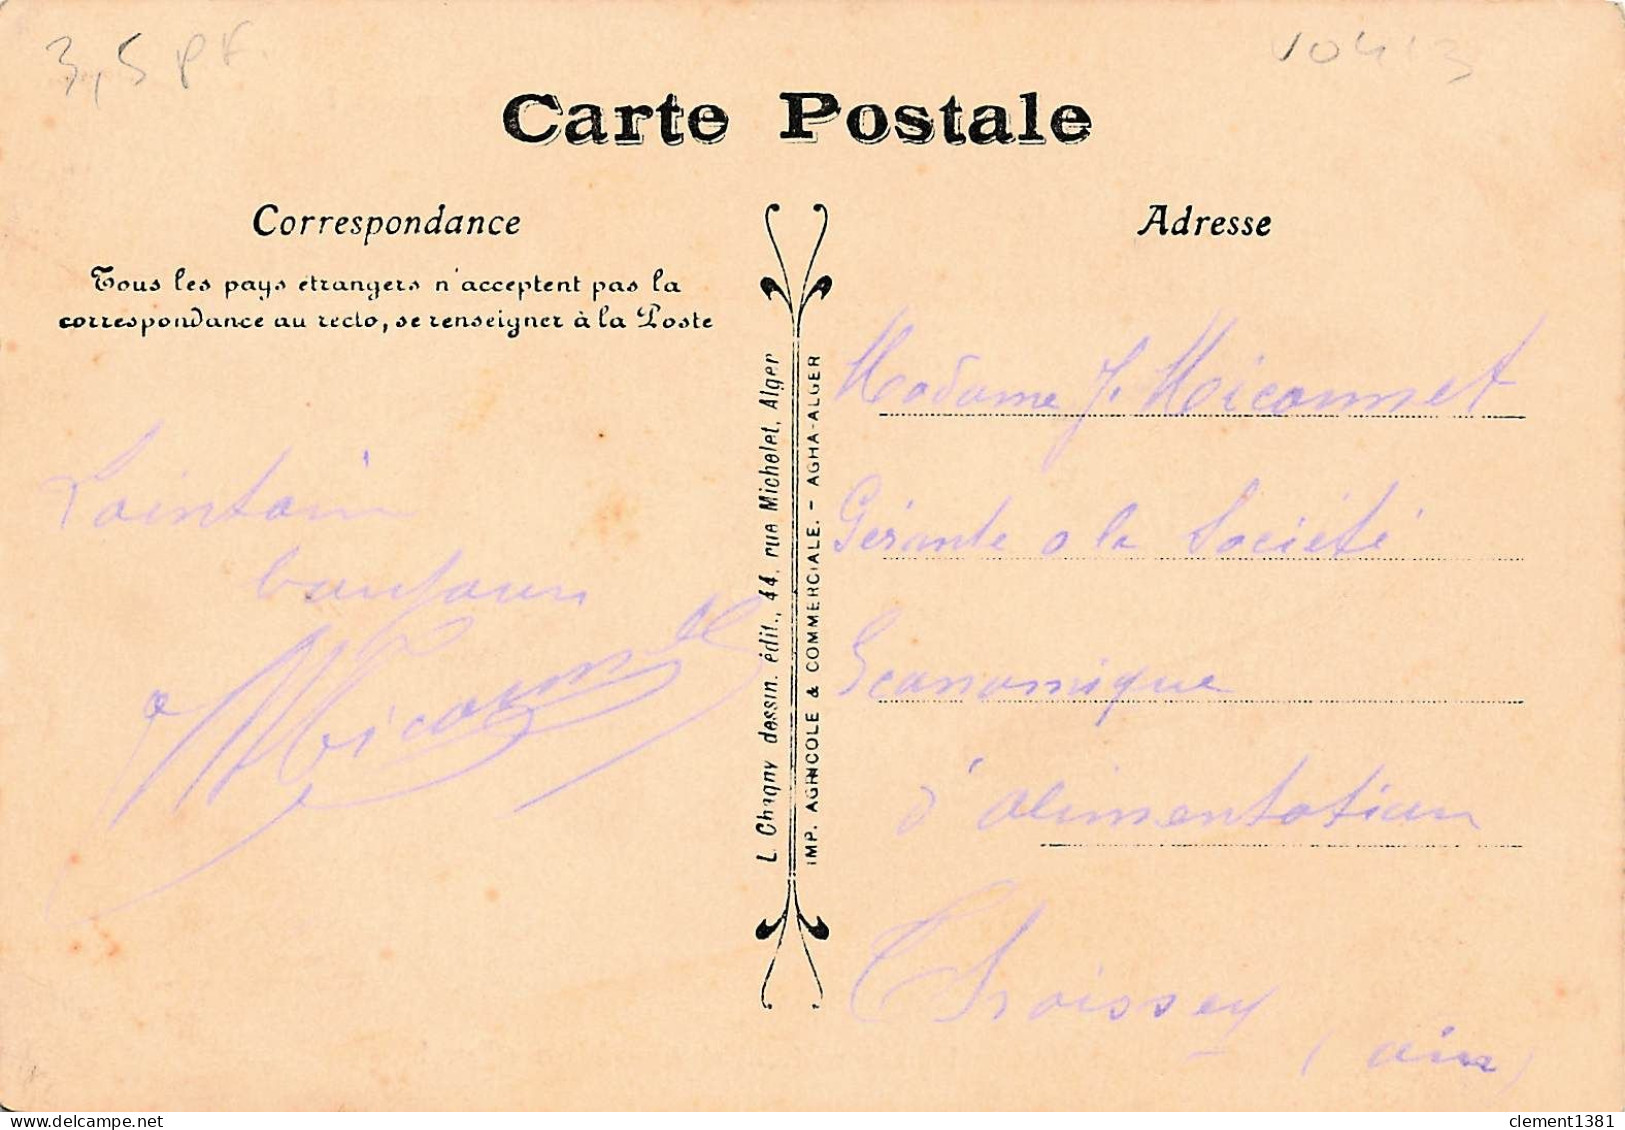 3,5 pf.
10413
Carte Postale
Correspondance
Tous les pays étrangers n'acceptent pas la
correspondance au recto, se renseigner à la Poste
Lointain
bonjour
Miconnet
L. Chagny dessin. édit., 44, rue Michelet, Alger
IMP. AGRICOLE & COMMERCIALE. - AGHA-ALGER
Adresse
Madame J. Miconnet
Gérante a la Société
Economique
d'alimentation
Thoissey
(ain)
clement1381